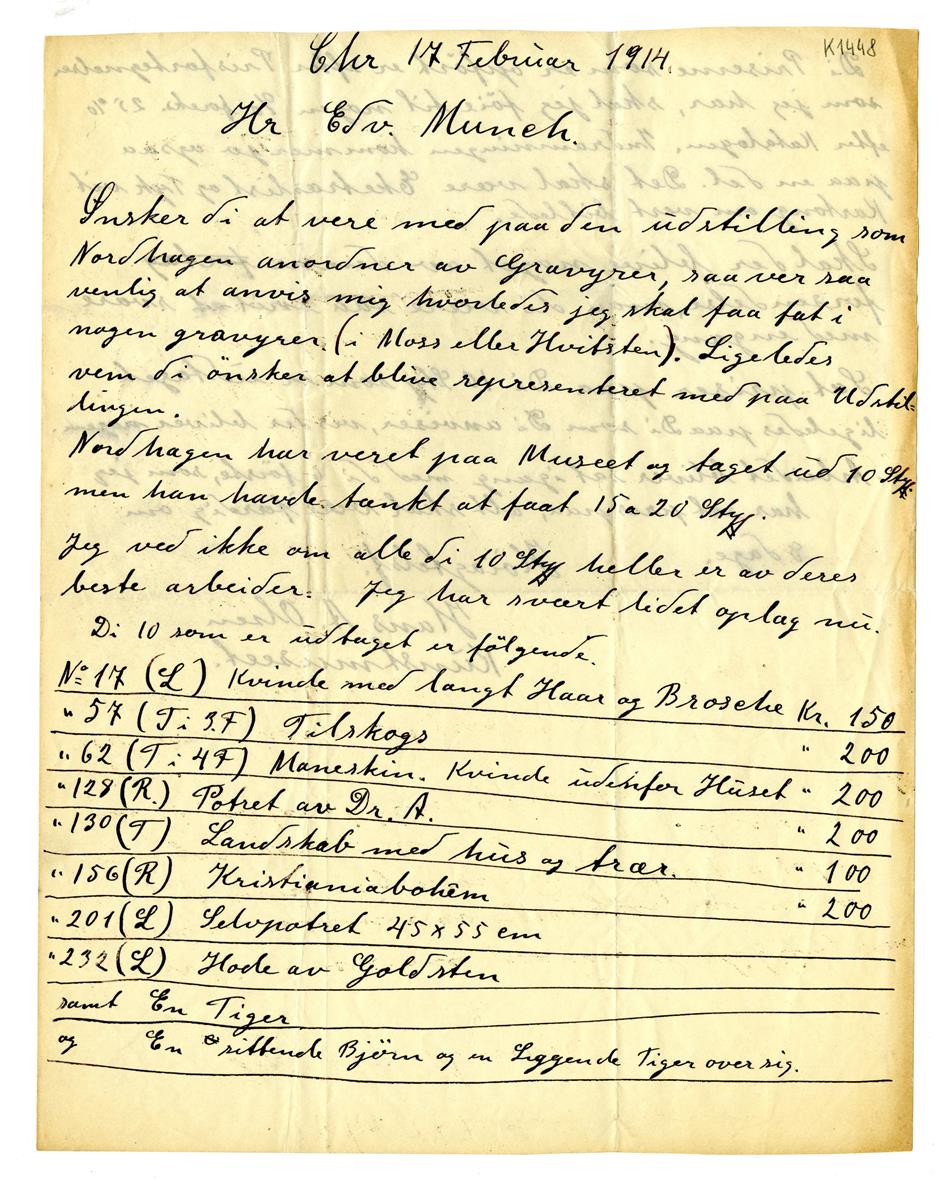 K1448
Chr 17 Februar 1914.
Hr Edv. Munch.
Ønsker di at vere med paa den udstilling som
Nordhagen anordner av Gravyrer, saa ver saa
venlig at anvis mig hvorledes jeg skal faa fat i
nogen gravyrer. (i Moss eller Hvitsten). Ligeledes
vem di önsker at blive representeret med paa Udstil-
lingen.
Nordhagen har veret paa Museet og taget ud 10 Styk
men han havde tænkt at faat 15 a 20 Styk.
Jeg ved ikke om alle di 10 Styk heller er av deres
beste arbeider. Jeg har svært lidet oplag nu.
Di 10 som er udtaget er fölgende.
No 17 (L) Kvinde med langt Haar og Brosche Kr. 150
" 57 (T i 3.F) Tilskogs " 200
" 62 (T i 4F) Maneskin. Kvinde udenfor Huset " 200
" 128 (R.) Potret av Dr. A. " 200
" 130 (T) Landskab med hus og trær. " 100
" 156 (R) Kristianiabohêm " 200
" 201 (L) Selvpotret 45 x 55 cm
" 232 (L) Hode av Goldsten
samt En Tiger
og En sittende Björn og en Liggende Tiger over sig.